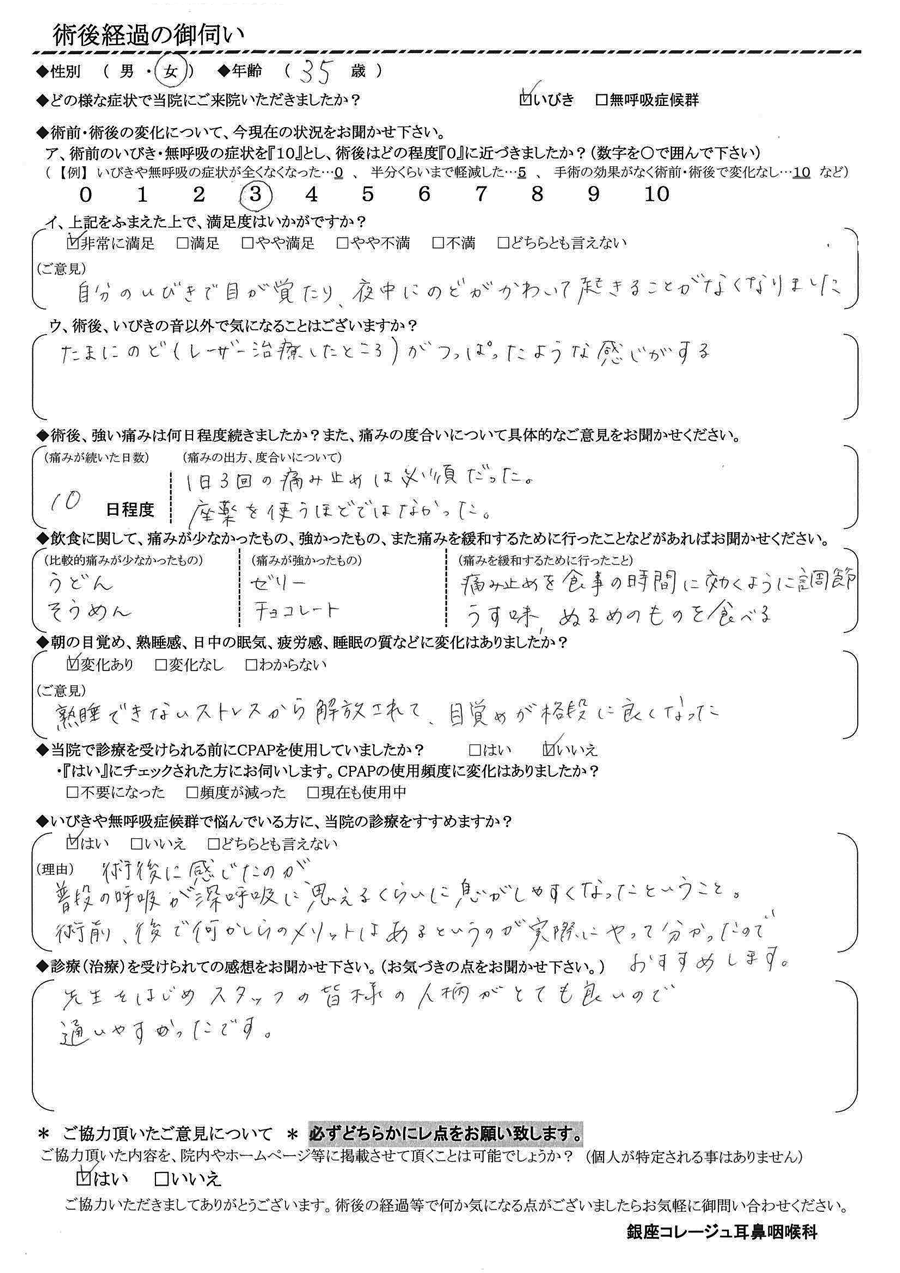 術後経過の御伺い
◆性別 （ 男 ・ 女 ） ◆年齢 （ 35 歳 ）
◆どの様な症状で当院にご来院いただきましたか？ ☑いびき □無呼吸症候群
◆術前・術後の変化について、今現在の状況をお聞かせ下さい。
ア、術前のいびき・無呼吸の症状を『10』とし、術後はどの程度『0』に近づきましたか？（数字を〇で囲んで下さい）
（ 【例】 いびきや無呼吸の症状が全くなくなった…0 、 半分くらいまで軽減した…5 、 手術の効果がなく術前・術後で変化なし…10 など）
0 1 2 3 4 5 6 7 8 9 10
イ、上記をふまえた上で、満足度はいかがですか？
☑非常に満足 □満足 □やや満足 □やや不満 □不満 □どちらとも言えない
（ご意見）
自分のいびきで目が覚たり、夜中にのどがかわいて起きることがなくなりました
ウ、術後、いびきの音以外で気になることはございますか？
たまにのど（レーザー治療したところ）がつっぱったような感じがする
◆術後、強い痛みは何日程度続きましたか？また、痛みの度合いについて具体的なご意見をお聞かせください。
（痛みが続いた日数） （痛みの出方、度合いについて）
1日3回の痛み止めは必須だった。
10 日程度
座薬を使うほどではなかった。
◆飲食に関して、痛みが少なかったもの、強かったもの、また痛みを緩和するために行ったことなどがあればお聞かせください。
（比較的痛みが少なかったもの） （痛みが強かったもの） （痛みを緩和するために行ったこと）
うどん ゼリー 痛み止めを食事の時間に効くように調節
そうめん チョコレート うす味、ぬるめのものを食べる
◆朝の目覚め、熟睡感、日中の眠気、疲労感、睡眠の質などに変化はありましたか？
☑変化あり □変化なし □わからない
（ご意見）
熟睡できないストレスから解放されて、目覚めが格段に良くなった
◆当院で診療を受けられる前にCPAPを使用していましたか？ □はい ☑いいえ
・『はい』にチェックされた方にお伺いします。CPAPの使用頻度に変化はありましたか？
□不要になった □頻度が減った □現在も使用中
◆いびきや無呼吸症候群で悩んでいる方に、当院の診療をすすめますか？
☑はい □いいえ □どちらとも言えない
（理由） 術後に感じたのが
普段の呼吸が深呼吸に思えるくらいに息がしやすくなったということ。
術前、後で何かしらのメリットはあるというのが実際にやって分かったので
おすすめします。
◆診療（治療）を受けられての感想をお聞かせ下さい。（お気づきの点をお聞かせ下さい。）
先生をはじめスタッフの皆様の人柄がとても良いので
通いやすかったです。
＊ ご協力頂いたご意見について ＊ 必ずどちらかにレ点をお願い致します。
ご協力頂いた内容を、院内やホームページ等に掲載させて頂くことは可能でしょうか？ （個人が特定される事はありません）
☑はい □いいえ
ご協力いただきましてありがとうございます。術後の経過等で何か気になる点がございましたらお気軽に御問い合わせください。
銀座コレージュ耳鼻咽喉科